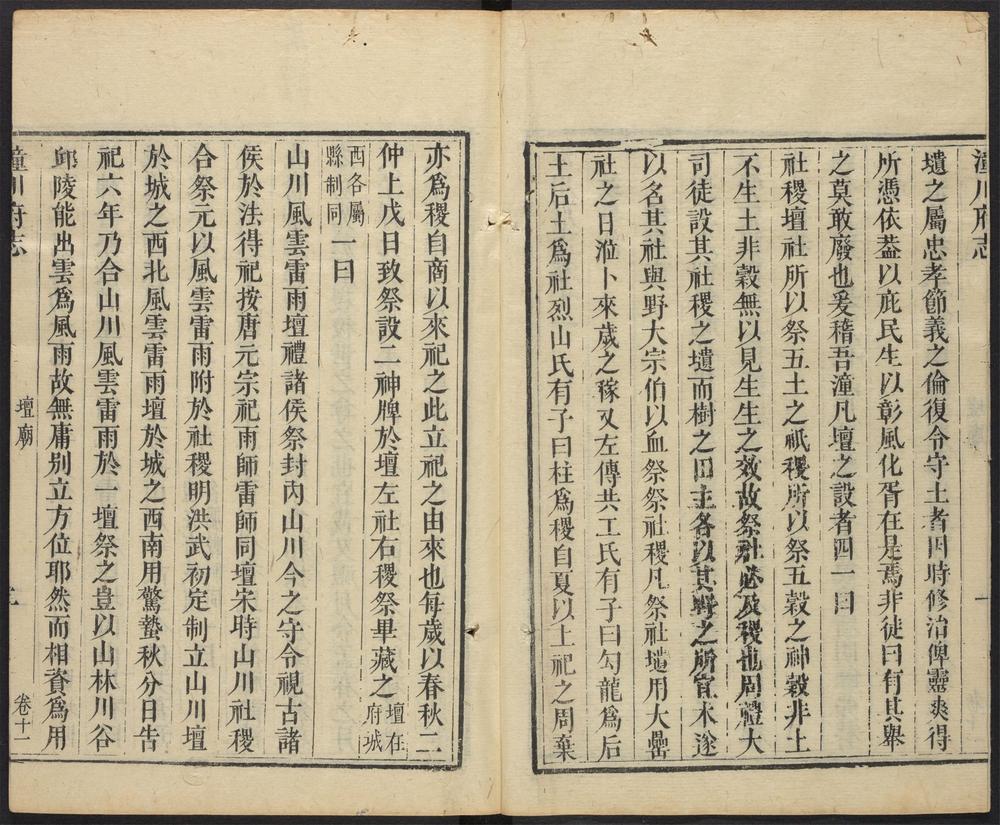 潼川府志
壝之屬忠孝節義之倫復令守土者四時修治俾靈爽得
所憑依葢以庇民生以彰風化胥在是焉非徒曰有其舉
之莫敢廢也爰稽吾潼凡壇之設者四一曰
社稷壇社所以祭五土之祇稷所以祭五穀之神穀非土
不生土非穀無以見生生之效故祭社必及稷也周禮大
司徒設其社稷之壝而樹之田主各以其野之所宜木遂
以名其社與野大宗伯以血祭祭社稷凡祭社壝用大罍
社之日涖卜來歲之稼又左傳共工氏有子曰勾龍為后
土后土為社烈山氏有子曰柱為稷自夏以上祀之周棄
亦為稷自商以來祀之此立祀之由來也每歲以春秋二
仲上戊日致祭設二神牌於壇左社右稷祭畢藏之壇在府城
西各屬縣制同一曰
山川風雲雷雨壇禮諸侯祭封內山川今之守令視古諸
侯於法得祀按唐元宗祀雨師雷師同壇宋時山川社稷
合祭元以風雲雷雨附於社稷明洪武初定制立山川壇
於城之西北風雲雷雨壇於城之西南用驚蟄秋分日告
祀六年乃合山川風雲雷雨於一壇祭之豈以山林川谷
邱陵能出雲為風雨故無庸别立方位耶然而相資為用
潼川府志
壇廟
卷十二